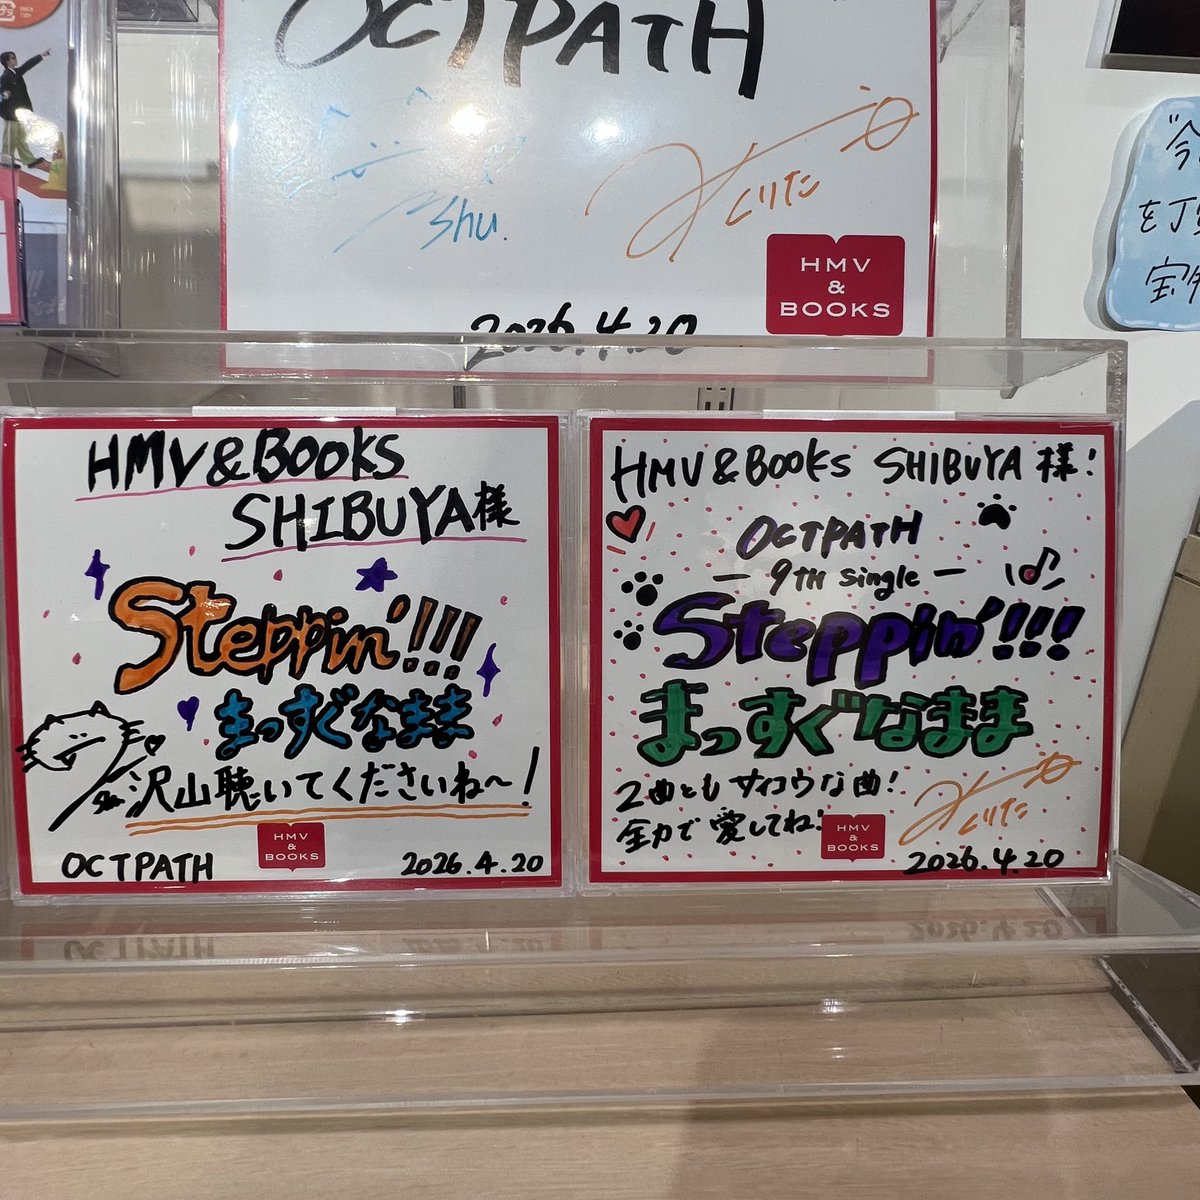 OCTPATH
Shu.
くりたこ
HMV
&
BOOKS
2026.4.20
HMV&BOOKS
SHIBUYA様
Steppin'!!!
まっすぐなまま
沢山聴いてくださいね〜!
OCTPATH
HMV
&
BOOKS
2026.4.20
HMV&BOOKS SHIBUYA様!
OCTPATH
— 9TH single —
Steppin'!!!
まっすぐなまま
2曲ともサイコウな曲!
全力で愛してね!
HMV
&
BOOKS
2026.4.20
"今
を